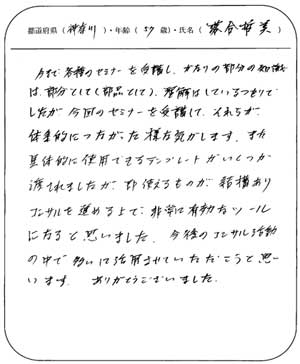 都道府県（神奈川）・年齢（57歳）・氏名（落合哲美）
今まで各種のセミナーを受講し、かなりの部分の知識
は、部分として（部品として）、理解はしているつもりで
したが、今回のセミナーを受講して、それらが、
体系的につながった様な気がします。また
具体的に使用できるテンプレートがいくつか
渡されましたが、即使えるものが、結構あり
コンサルを進める上で、非常に有効なツール
になると思いました。今後のコンサル活動
の中で、多いに活用させていただこうと思
います。ありがとうございました。